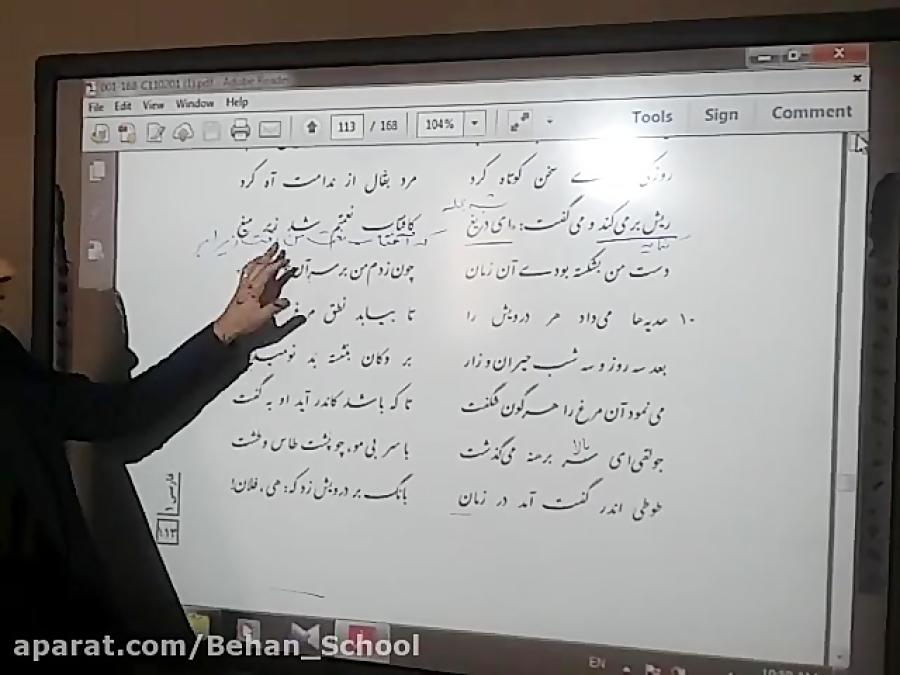 001-168-C110201 (1).pdf - Adobe Reader
File Edit View Window Help
113 / 168 104% Tools Sign Comment
سخن کوتاه کرد مرد بقال از ندامت آه کرد
ریش برمی‌کند و می‌گفت: «ای دریغ کافتاب نعمتم شد زیر میغ
دست من بشکسته بودے آن زمان چون زدم من بر سر آن
۱۰ هدیه‌ها می‌داد هر درویش را تا بیابد نطق
بعد سه روز و سه شب حیران و زار بر دکان بنشسته بد
می‌نمود آن مرغ را هر گون شگفت تا که باشد کاندر آید او به گفت
جولقی‌ای سر برهنه می‌گذشت با سر بی‌مو، چو پشت طاس و طشت
بالا
طوطی اندر گفت آمد در زمان بانگ بر درویش زد که: هی، فلان!
فارسی ۱
۱۱۳
EN
aparat.com/Behan_School